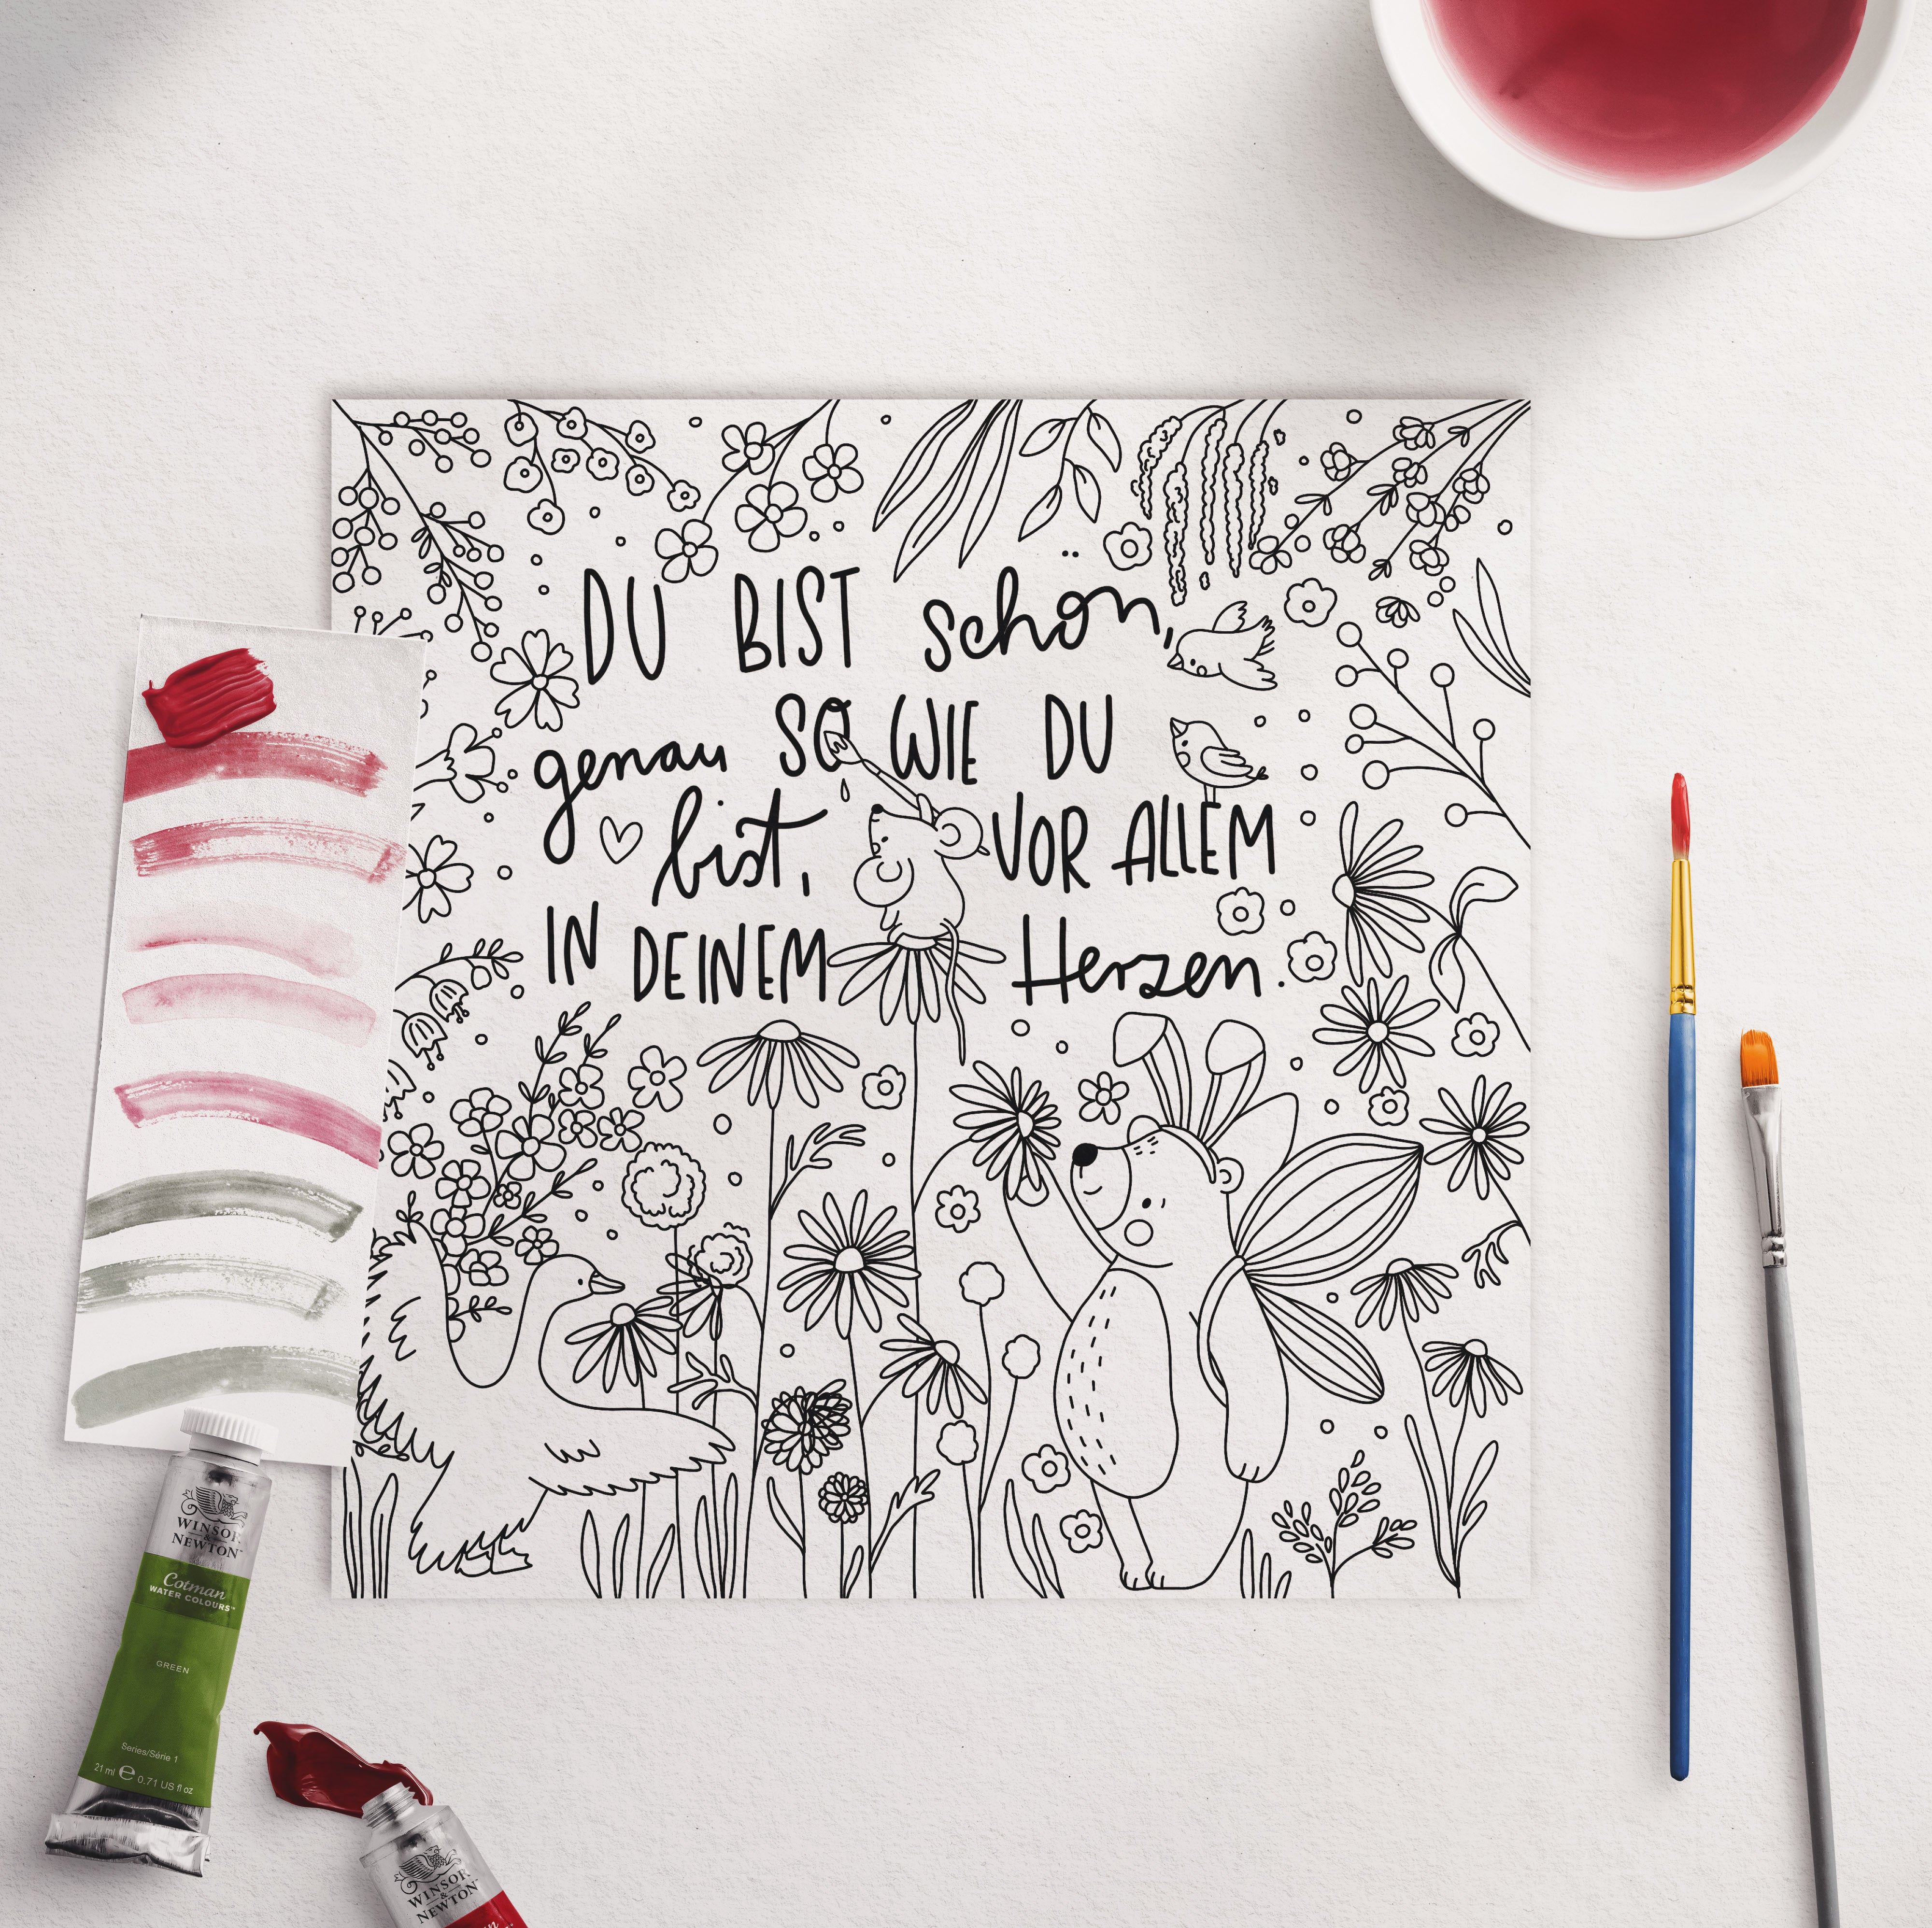 DU BIST schön,
genau SO WIE DU
bist, VOR ALLEM
IN DEINEM Herzen.
WINSOR
&
NEWTON™
Cotman
WATER COLOURS™
GREEN
Series/Série 1
21 ml e 0.71 US fl oz
WINSOR
&
NEWTON™